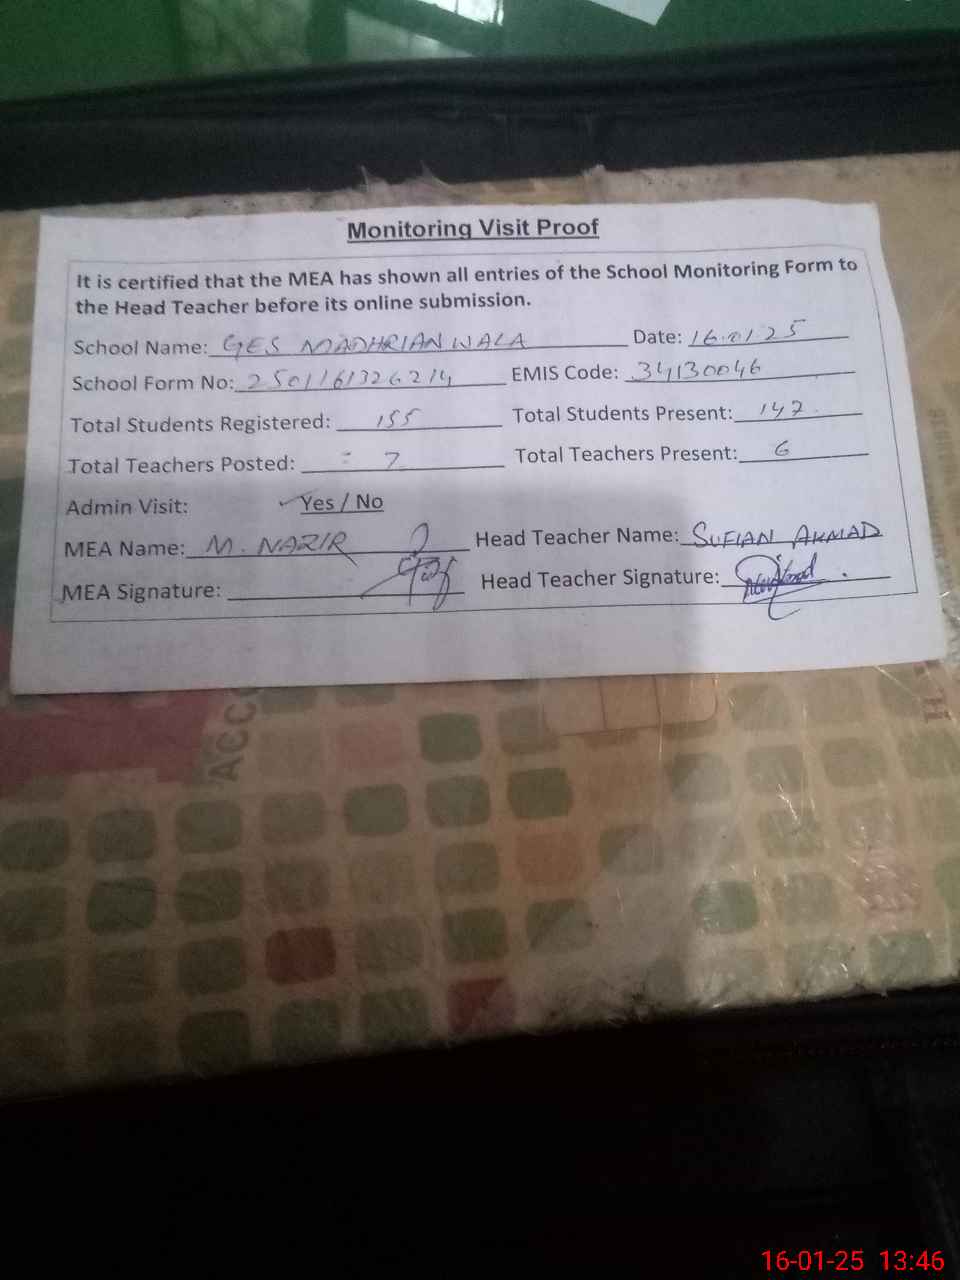 Monitoring Visit Proof
It is certified that the MEA has shown all entries of the School Monitoring Form to
the Head Teacher before its online submission.
School Name: GES MADHRIANWALA Date: 16.01.25
School Form No: 2501161326214 EMIS Code: 34130046
Total Students Registered: 155 Total Students Present: 147
Total Teachers Posted: 7 Total Teachers Present: 6
Admin Visit: Yes / No
MEA Name: M. NAZIR Head Teacher Name: SUFIAN AHMAD
MEA Signature: Head Teacher Signature:
ACCO
16-01-25 13:46